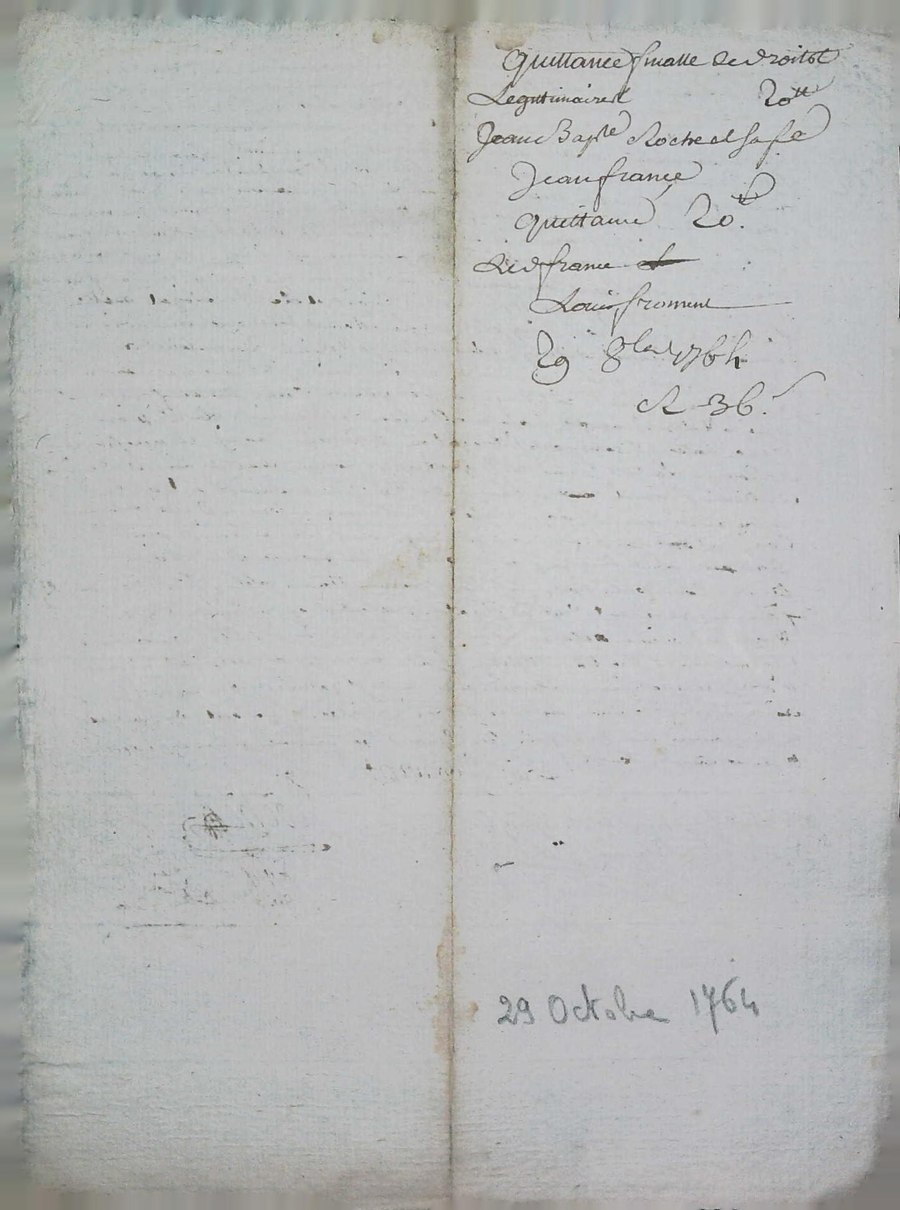 Quittance finalle de droitst
Legitimairest 20tt
Jean Bapte Roche et sa fe
Jean france
quittance 20
Ledt france
Louis froment
29 8bre 1764
R 36.
29 Octobre 1764